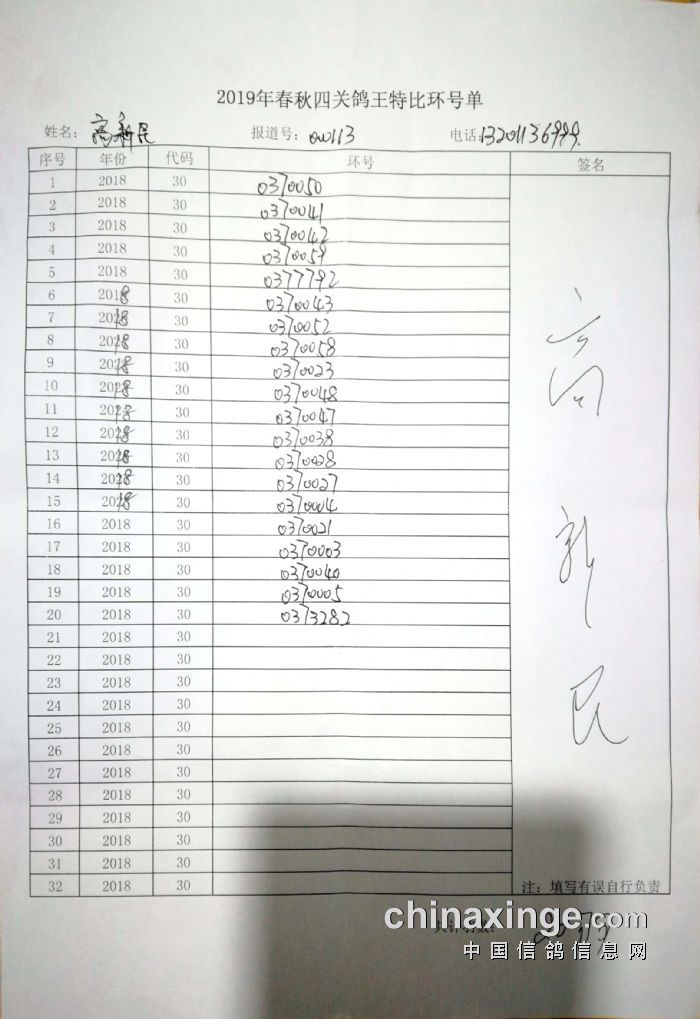 2019年春秋四关鸽王特比环号单
姓名: 高新民 报道号: 000113 电话:
序号 年份 代码 环号 签名
1 2018 30 0370050
2 2018 30 0370041
3 2018 30 0370042
4 2018 30 0370059
5 2018 30 0377792
6 2018 30 0370043
7 2018 30 0370052
8 2018 30 0370058
9 2018 30 0370023
10 2018 30 0370048
11 2018 30 0370047
12 2018 30 0370038
13 2018 30 0370028
14 2018 30 0370027
15 2018 30 0370004
16 2018 30 0370021
17 2018 30 0370003
18 2018 30 0370040
19 2018 30 0370005
20 2018 30 0373282
21 2018 30
22 2018 30
23 2018 30
24 2018 30
25 2018 30
26 2018 30
27 2018 30
28 2018 30
29 2018 30
30 2018 30
31 2018 30
32 2018 30
高新民
注: 填写有误自行负责
chinaxinge.com
中国信鸽信息网